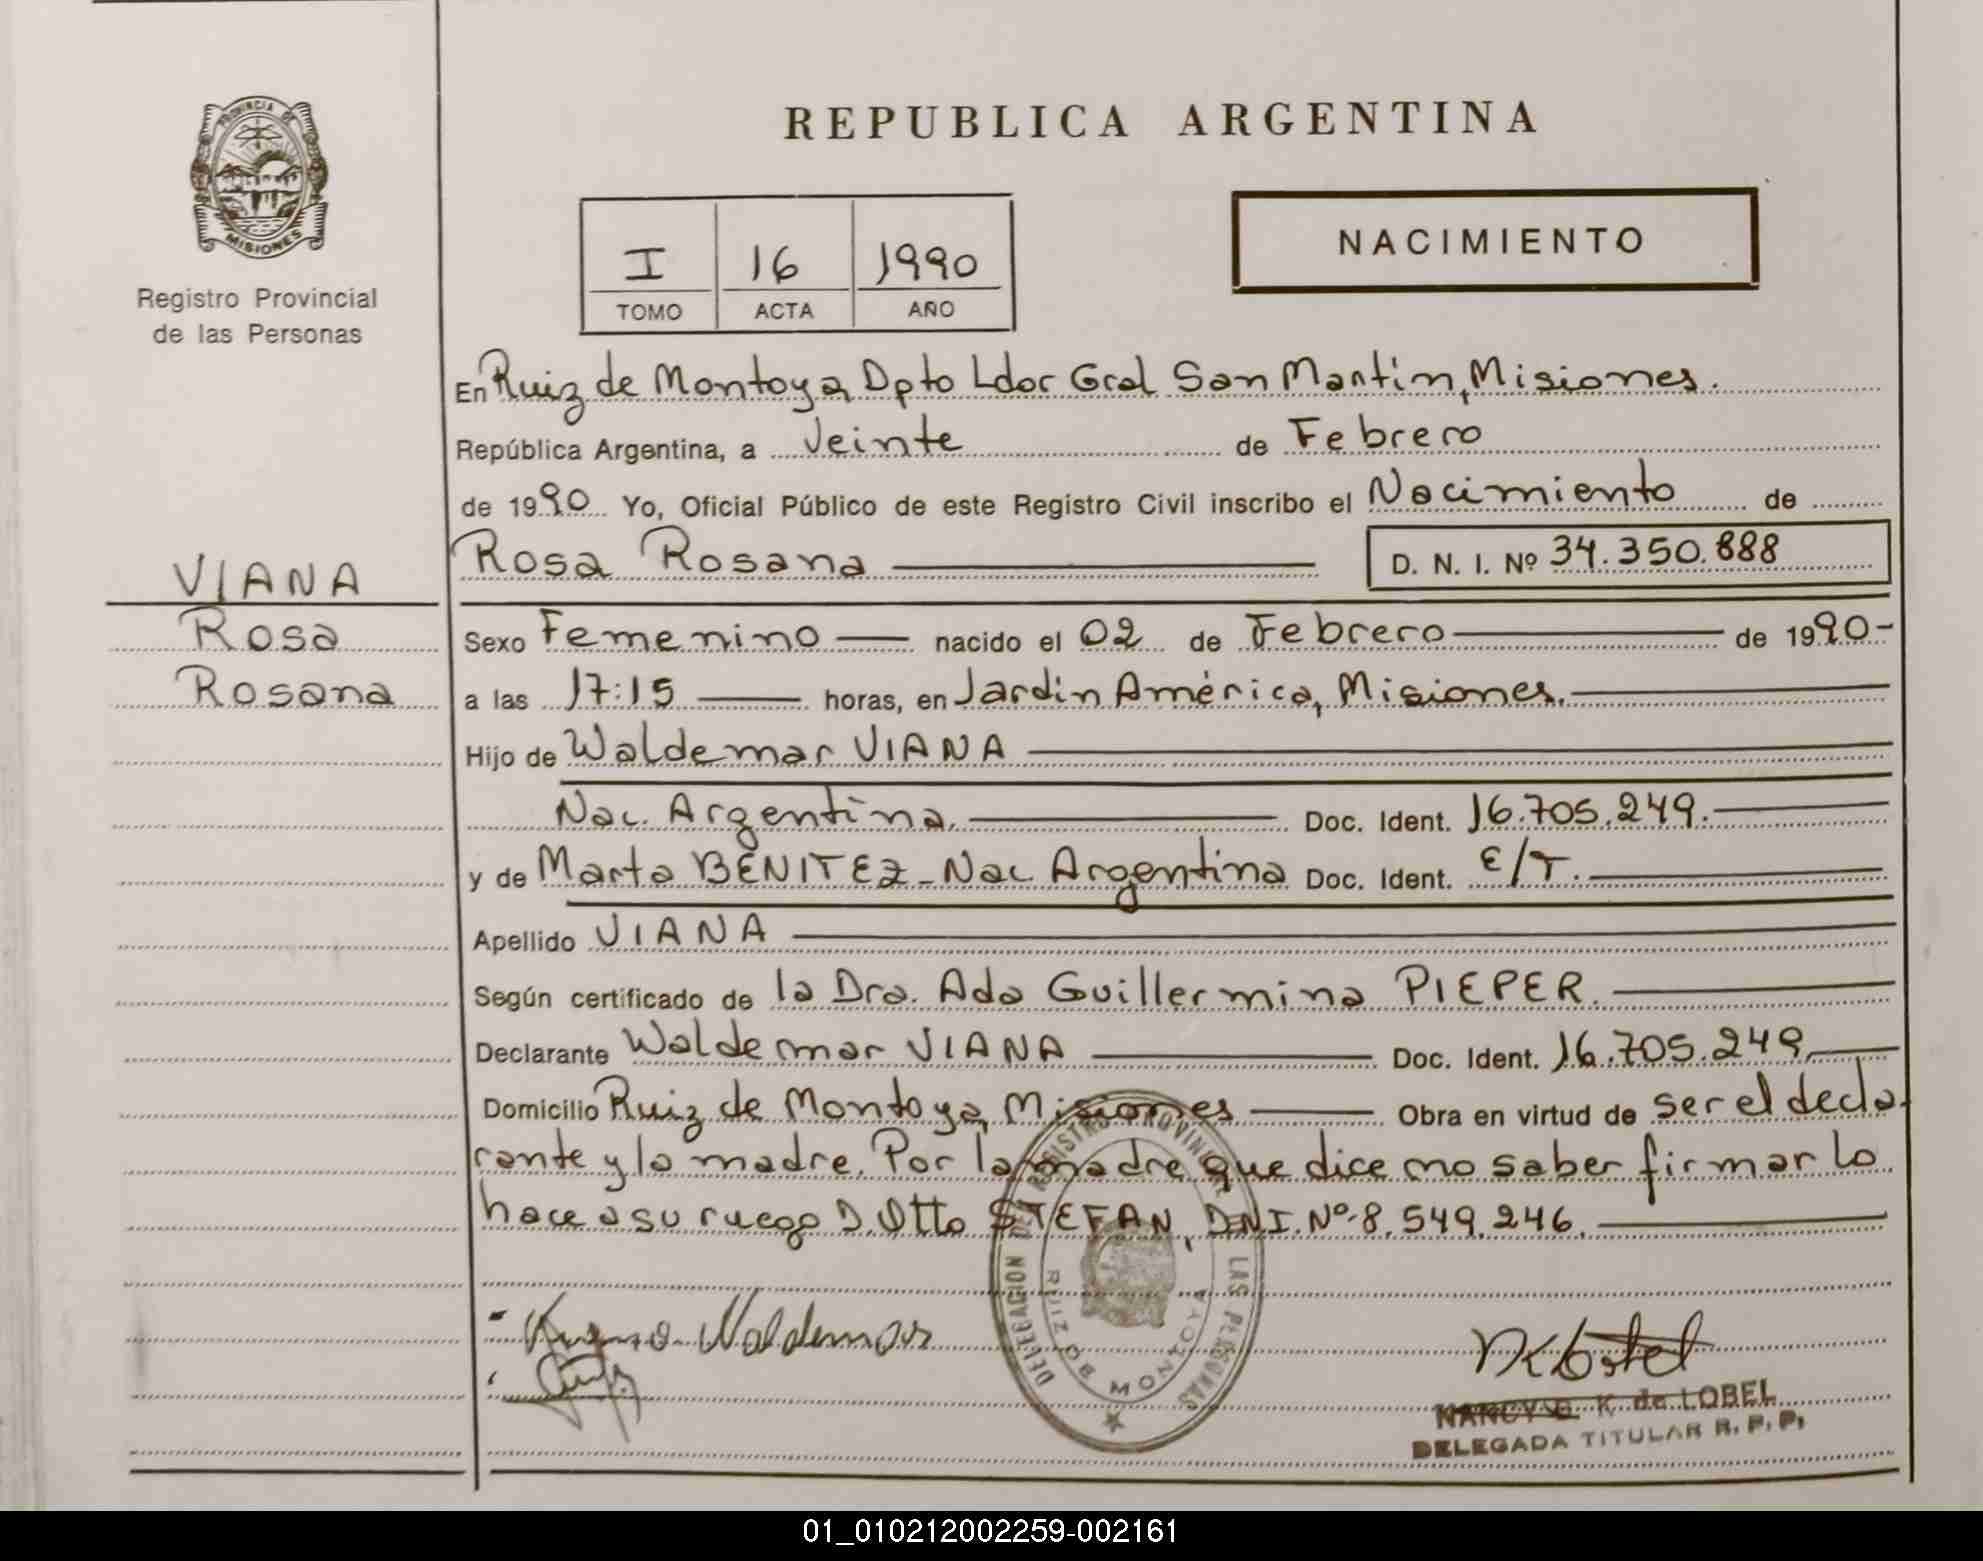 REPUBLICA ARGENTINA
PROVINCIA DE
MISIONES
Registro Provincial
de las Personas
I 16 1990
TOMO ACTA AÑO
NACIMIENTO
En Ruiz de Montoya, Dpto Ldor Gral San Martín, Misiones.
República Argentina, a Veinte de Febrero
de 1990 Yo, Oficial Público de este Registro Civil inscribo el Nacimiento de
Rosa Rosana D. N. I. Nº 34.350.888
VIANA
Rosa
Rosana
Sexo Femenino nacido el 02 de Febrero de 1990-
a las 17:15 horas, en Jardín América, Misiones.
Hijo de Waldemar VIANA
Nac. Argentina. Doc. Ident. 16.705.249.
y de Marta BENITEZ - Nac Argentina Doc. Ident. E/T.
Apellido VIANA
Según certificado de la Dra. Ada Guillermina PIEPER.
Declarante Waldemar VIANA Doc. Ident. 16.705.249
Domicilio Ruiz de Montoya, Misiones Obra en virtud de ser el decla-
rante y la madre. Por la madre que dice no saber firmar lo
hace a su ruego D. Otto STEFAN, DNI. Nº 8.549.246.
DELEGACION DEL REGISTRO PROVINCIAL DE LAS PERSONAS
RUIZ DE MONTOYA
Waldemar
NANCY K. de LOBEL
DELEGADA TITULAR R. P. P.
01_010212002259-002161